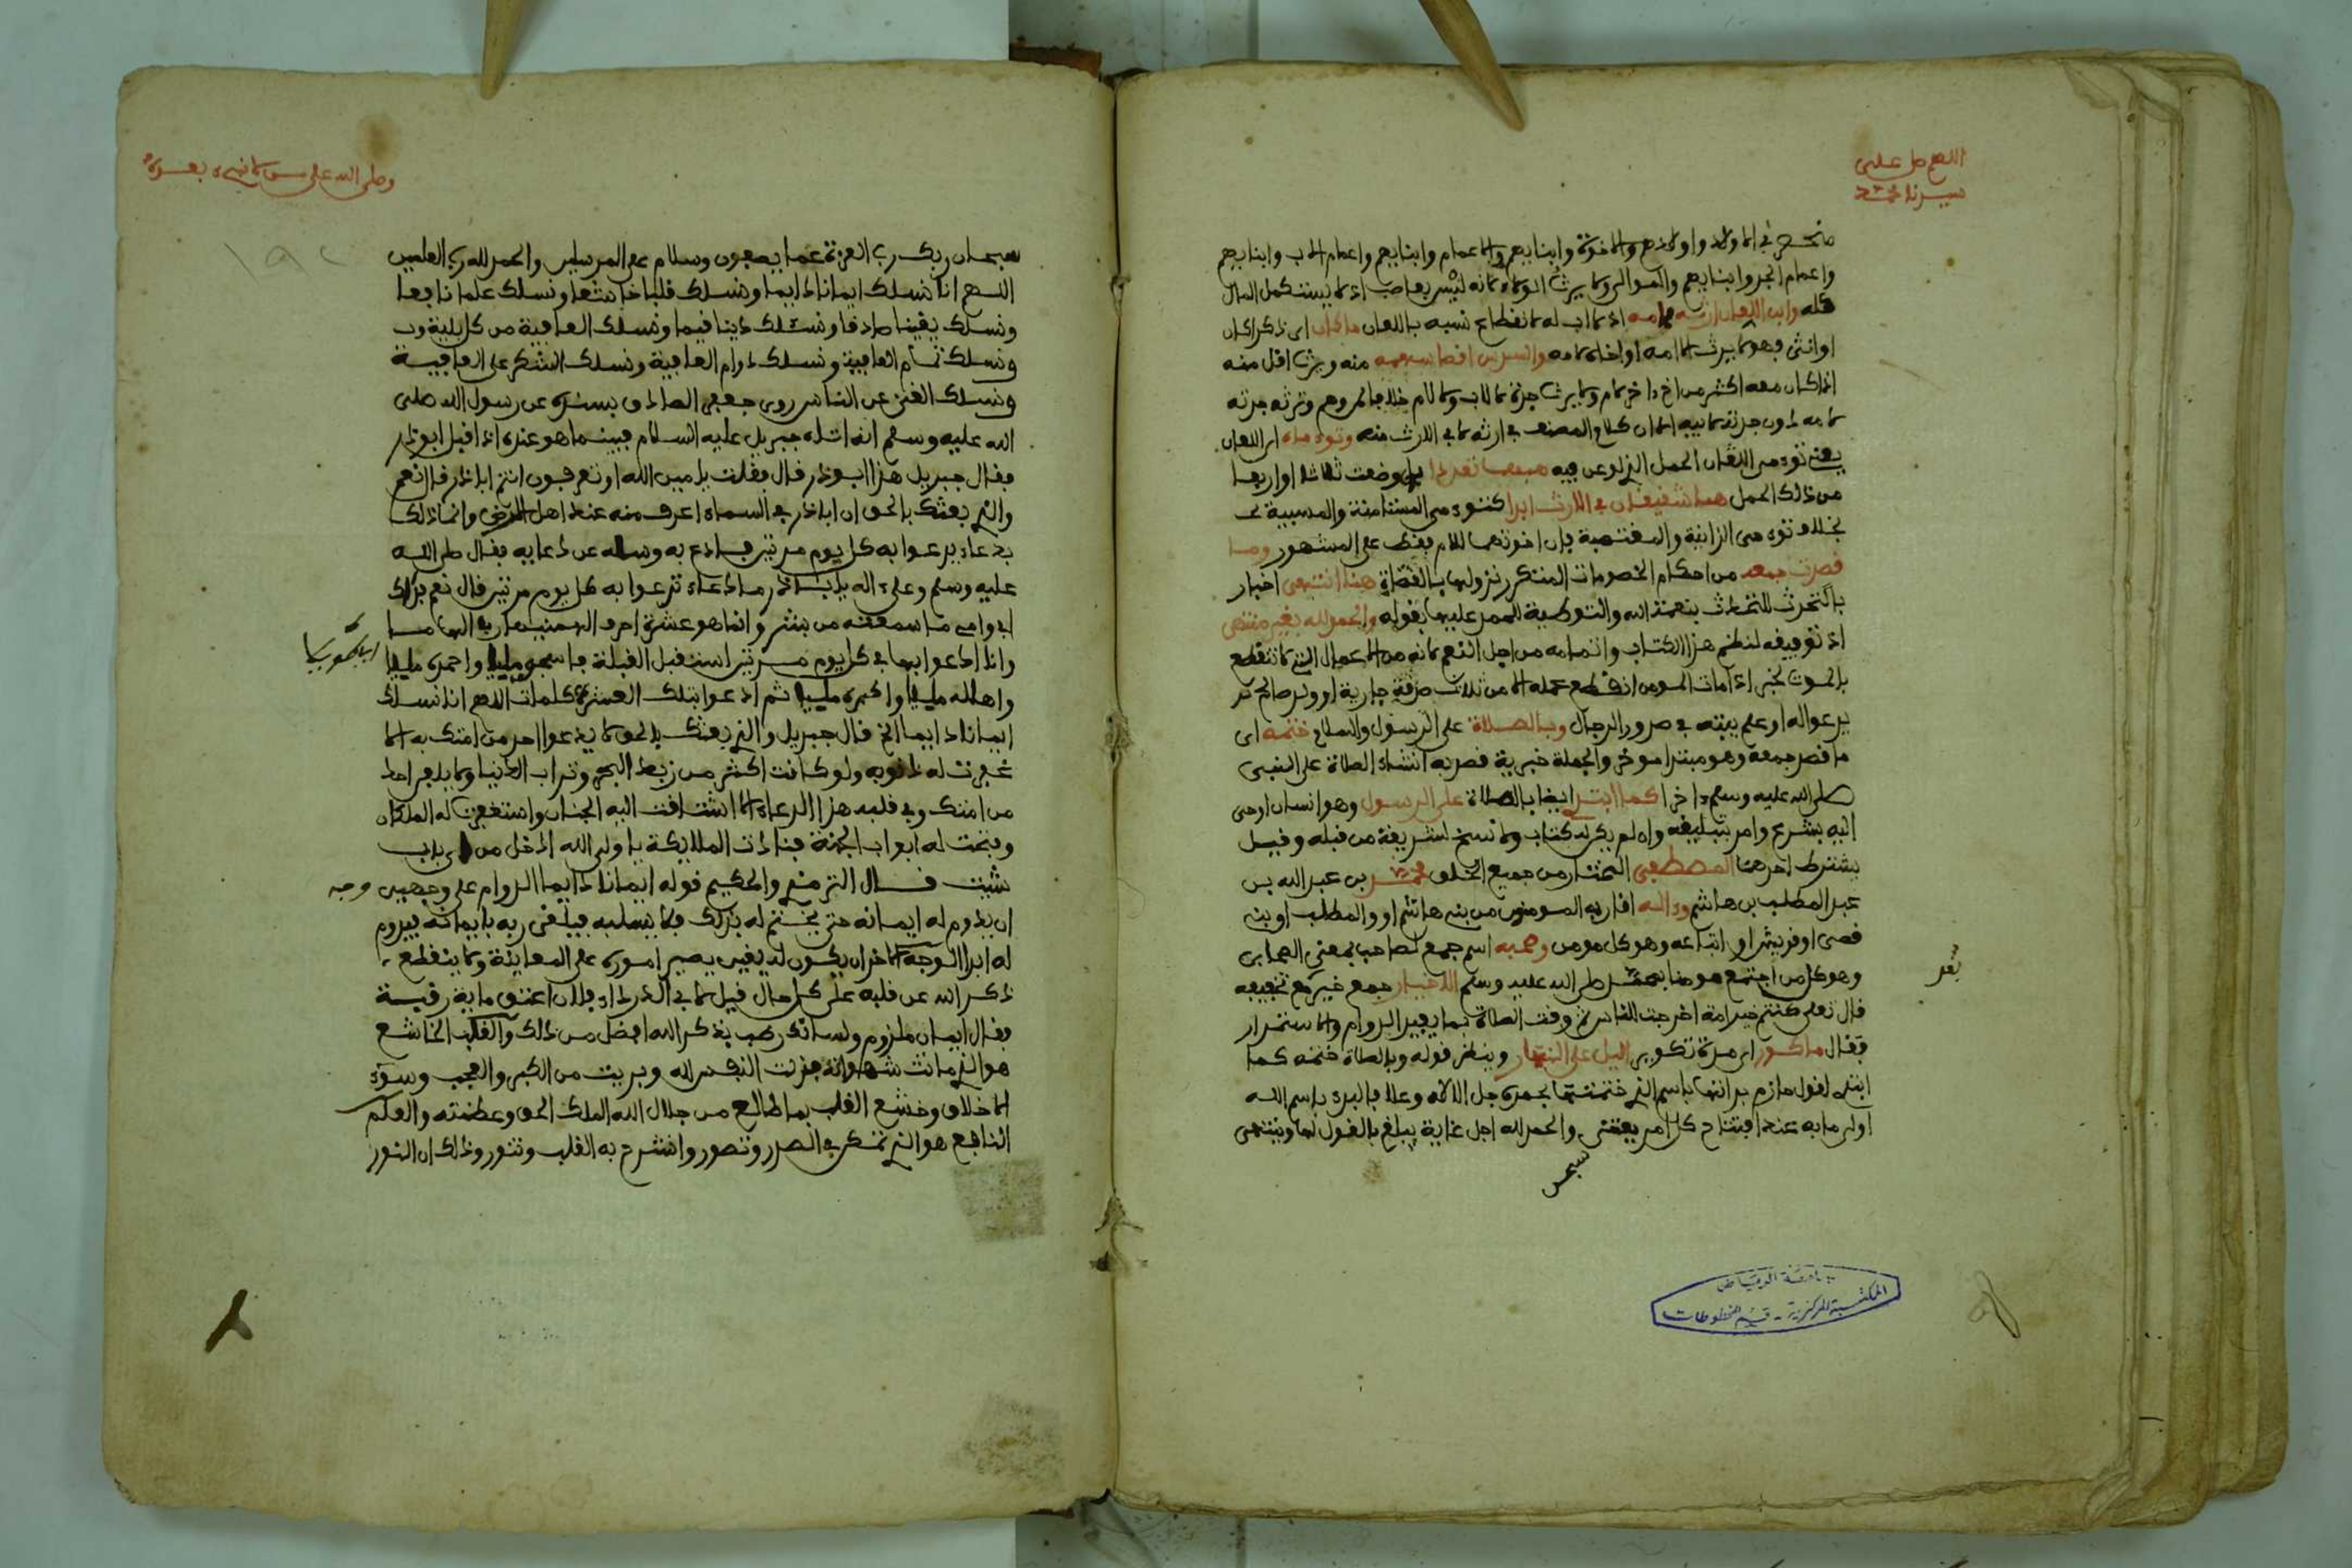 اللهم صل على
سيدنا محمد
منحصر في الاولاد واولادهم والاخوة وابنايهم والاعمام وابنايهم واعمام الاب وابنايهم
واعمام الجد وابنايهم والموالي ولا يرث الولاء لانه ليس بعاصب اذ لا يستكمل المال
كله وابن اللعان ارثه بامه اذ لا اب له لانقطاع نسبه باللعان ما كان اي ذكرا كان
او انثى فهو لا يرث الا امه او اخاه لامه والسدس اقصا سهمه منه ويرث اقل منه
اذا كان معه اكثر من اخ لام ولا يرث جدة لاب ولا لام وترثه جدته
لامه دون جدته لابيه في ارثه لا في الارث منه وتوءماه اي اللعان
يعني توءمى اللعان الحمل الذي لوعن فيه مهما تعددا بان وضعت ثلاثا او اربعا
من ذلك الحمل هما شقيقان في الارث ابدا كتوءمى المستامنة والمسبية
بخلاف توءمى الزانية والمغتصبة فان اخوتهما للام فقط على المشهور وما
قصدت جمعه من احكام الخصومات المتكرر نزولها بالقضاة هنا انتهى اخبار
بالتحدث بنعمة الله والتوطية للحمد عليها بقوله والحمد لله بغير منتهى
اذ توفيقه لنظم هذا الكتاب واتمامه من اجل النعم لانه من الاعمال التي لا تنقطع
بالموت لخبر اذا مات المومن انقطع عمله الا من ثلاث صدقة جارية او ولد صالح
يدعو اله او علم بيثه في صدور الرجال وبالصلاة على الرسول والسلام ختمه اي
ما قصد جمعه وهو مبتدا موخر والجملة خبرية قصد به انشاء الصلاة على النبي
صلى الله عليه وسلم ءاخرا كما ابتدى ايضا بالصلاة على الرسول وهو انسان اوحى
اليه بشرع وامر بتبليغه وان لم يكن له كتاب ولا نسخ لشريعة من قبله وقيل
يشترط احدهما المصطفى المختار من جميع الخلق محمد بن عبد الله بن
عبد المطلب بن هاشم وءاله اقاربه المومنون من بني هاشم او والمطلب او بني
قصى او قريش او اتباعه وهو كل مومن وصحبه اسم جمع لصاحب بمعنى الصحابى
وهو كل من اجتمع مومنا بمحمد صلى الله عليه وسلم الاخيار جمع خير مع تخفيفه
قال تعلى كنتم خير امة اخرجت للناس ثم وقت الصلاة بما يفيد الدوام والاستمرار
فقال ما كور اي مدة تكوير اليل على النهار وينظر قوله وبالصلاة ختمه كما
ابتدى لقول حازم بدانها باسم الذي ختمتها بحمده جل الاله وعلا فالبدء باسم الله
اولى ما به عند افتتاح كل امر يعتنى والحمد لله اجل غاية يبلغ بالقول لها وينتهى
سبحن
جامعة الرياض
المكتبة المركزية - قسم المخطوطات
سبحان ربك رب العزة عما يصفون وسلام على المرسلين والحمد لله رب العلمين
اللهم انا نسلك ايمانا دايما ونسلك قلبا خاشعا ونسلك علما نافعا
ونسلك يقينا صادقا ونسئلك دينا قيما ونسلك العافية من كل بلية
ونسلك تمام العافية ونسلك دوام العافية ونسلك الشكر على العافية
ونسلك الغنى عن الناس روى جعفر الصادق بسنده عن رسول الله صلى
الله عليه وسلم انه اتاه جبريل عليه السلام فبينما هو عنده اذ اقبل ابو ذر
فقال جبريل هذا ابو ذر قال فقلت يا امين الله اوتعرفون انتم ابا ذر قال نعم
والذي بعثك بالحق ان ابا ذر في السماء اعرف منه عند اهل الارض وانما ذلك
بدعاء يدعوا به كل يوم مرتين فادع به وسله عن دعايه فقال صلى الله
عليه وسلم وعلى اله يا ابا ذر ما دعاء تدعوا به كل يوم مرتين قال نعم فداك
ابي وامى ما سمعته من بشر وانما هو عشرة احرف الهمنيها ربي الهاما
وانا ادعوا بها في كل يوم مرتين استقبل القبلة فاسبح مليا واحمده مليا
واهلله مليا واكبره مليا ثم ادعوا بتلك العشرة كلمات اللهم انا نسلك
ايمانا دايما الخ قال جبريل والذي بعثك بالحق لا يدعوا احد من امتك به الا
غفرت له ذنوبه ولو كانت اكثر من زبد البحر وتراب الدنيا ولا يلقى احد
من امتك وفي قلبه هذا الدعاء الا اشتاقت اليه الجنان واستغفر له الملكان
وفتحت له ابواب الجنة فنادت الملايكة يا ولي الله ادخل من اي باب
شيت قال الترمذي والحكيم قوله ايمانا دايما الدوام على وجهين وجه
ان يدوم له ايمانه حتى يختم له بذلك فلا يسلبه فيلقى ربه بايمانه فيدوم
له ابدا الوجه الاخر ان يكون له يقين يصير اموره على المعاينة ولا ينقطع
ذكر الله عن قلبه على كل حال قيل لابي الدرداء فلان اعتق ماية رقبة
فقال ايمان ملزوم ولسانك رطب بذكر الله افضل من ذلك والقلب الخاشع
هو الذي ماتت شهواته فذلت النفس لله وبريت من الكبر والعجب وسوء
الاخلاق وخشع القلب بما طالع من جلال الله الملك الحق وعظمته والعلم
النافع هو الذي تمكن في الصدر وتصور وانشرح به القلب وتنور وذلك ان النور